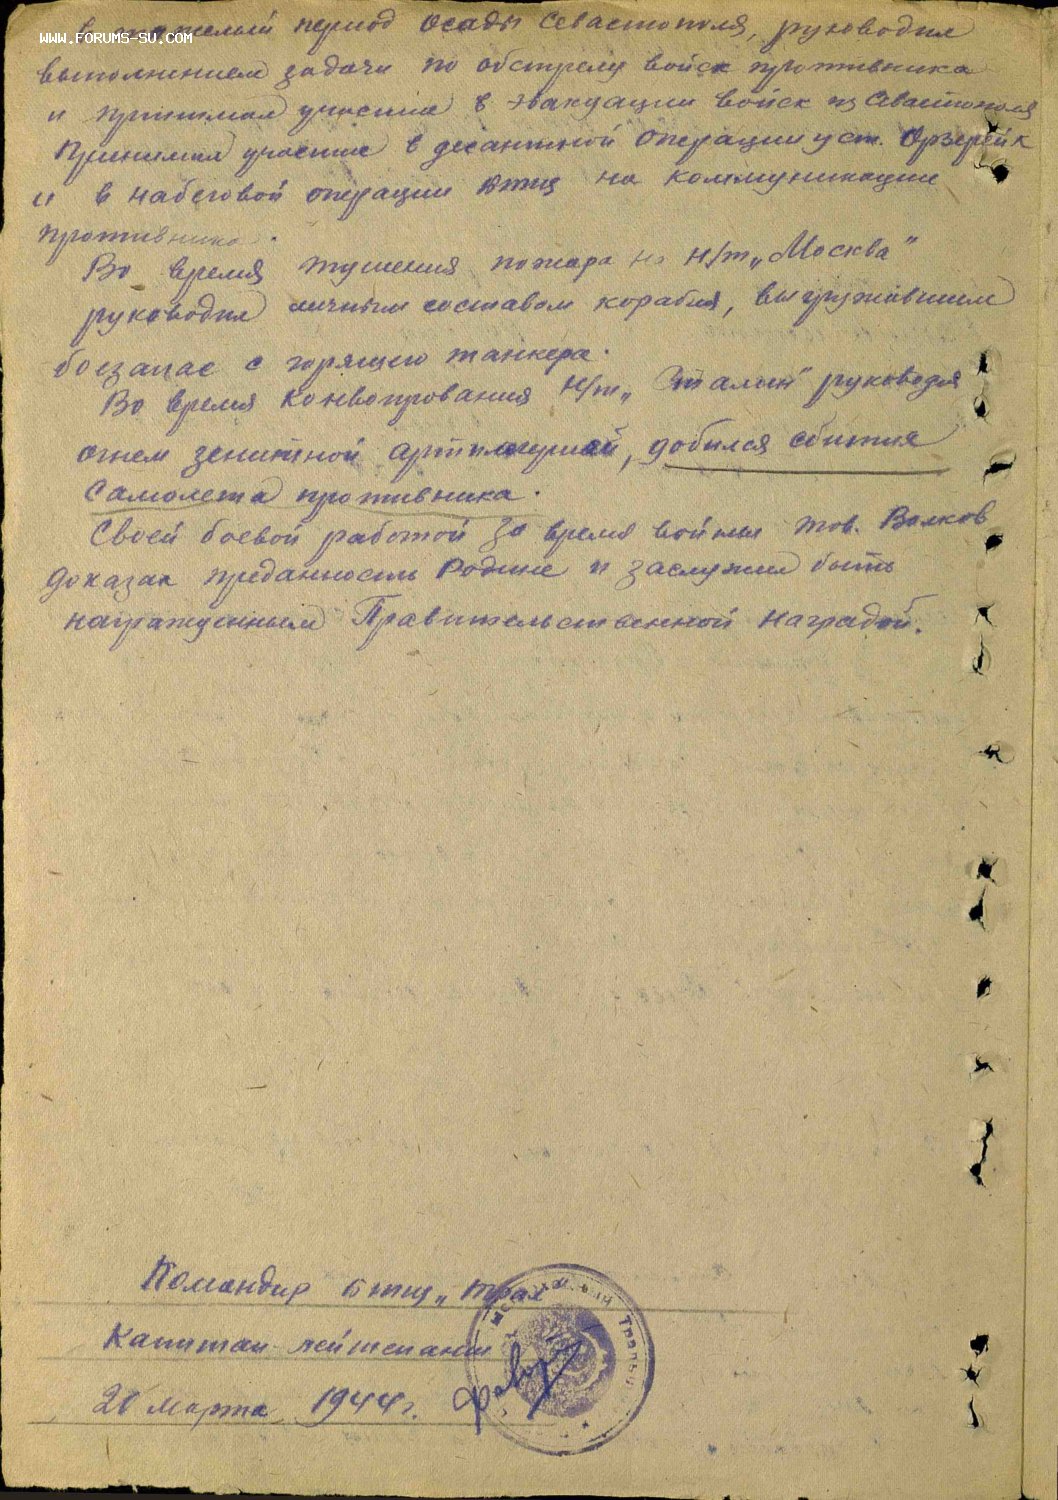 WWW.FORUMS-SU.COM
в тяжелый период осады Севастополя, руководил
выполнением задачи по обстрелу войск противника
и принимал участие в эвакуации войск из Севастополя
Принимал участие в десантной операции у ст. Озерейк
и в набеговой операции БТЩ на коммуникации
противника.
Во время тушения пожара на н/т „Москва"
руководил личным составом корабля, выгружавшим
боезапас с горящего танкера.
Во время конвоирования н/т „Сталин" руководя
огнем зенитной артиллерией, добился сбития
самолета противника.
Своей боевой работой за время войны тов. Волков
доказал преданность Родине и заслужил быть
награжденным Правительственной наградой.
Командир БТЩ „Трал"
Капитан-лейтенант
20 марта 1944 г.